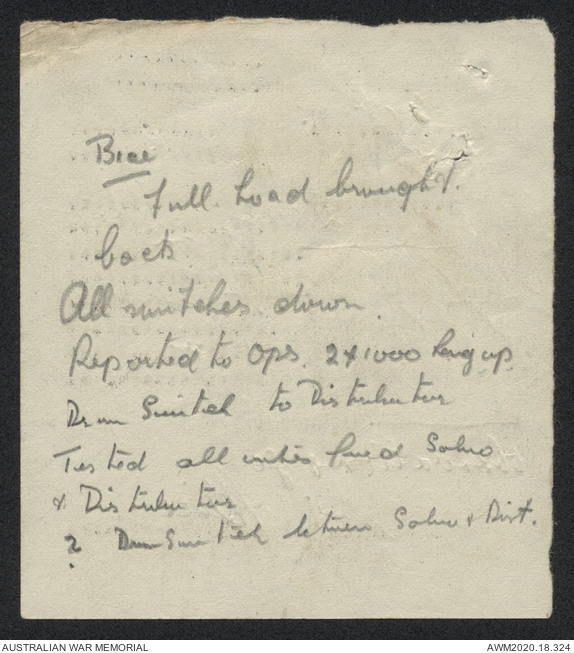 Brei
Full Load brought
back
All switches down.
Reported to Ops. 2x1000 hung up
Drum Switch to Distributor
Tested all Soleno
& Distributor
? Drum Switch between Soleno & Dist.
AUSTRALIAN WAR MEMORIAL
AWM2020.18.324